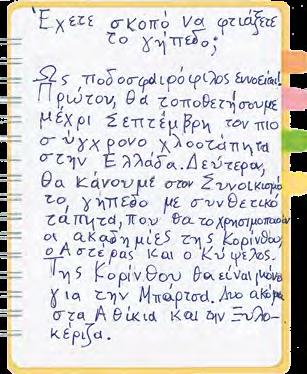 Έχετε σκοπό να φτιάξετε
το γήπεδο;
Ως ποδοσφαιρόφιλος εννοείται!
Πρώτον, θα τοποθετήσουμε
μέχρι Σεπτέμβρη τον πιο
σύγχρονο χλοοτάπητα
στην Ελλάδα. Δεύτερον,
θα κάνουμε στον Συνοικισμό
το γήπεδο με συνθετικό
τάπητα, που θα το χρησιμοποιούν
οι ακαδημίες της Κορίνθου,
ο Αστέρας και ο Κύψελος.
Της Κορίνθου θα είναι μόνο
για την Μπάρτσα. Δυο ακόμα
στα Αθίκια και την Ξυλο-
κέριζα.